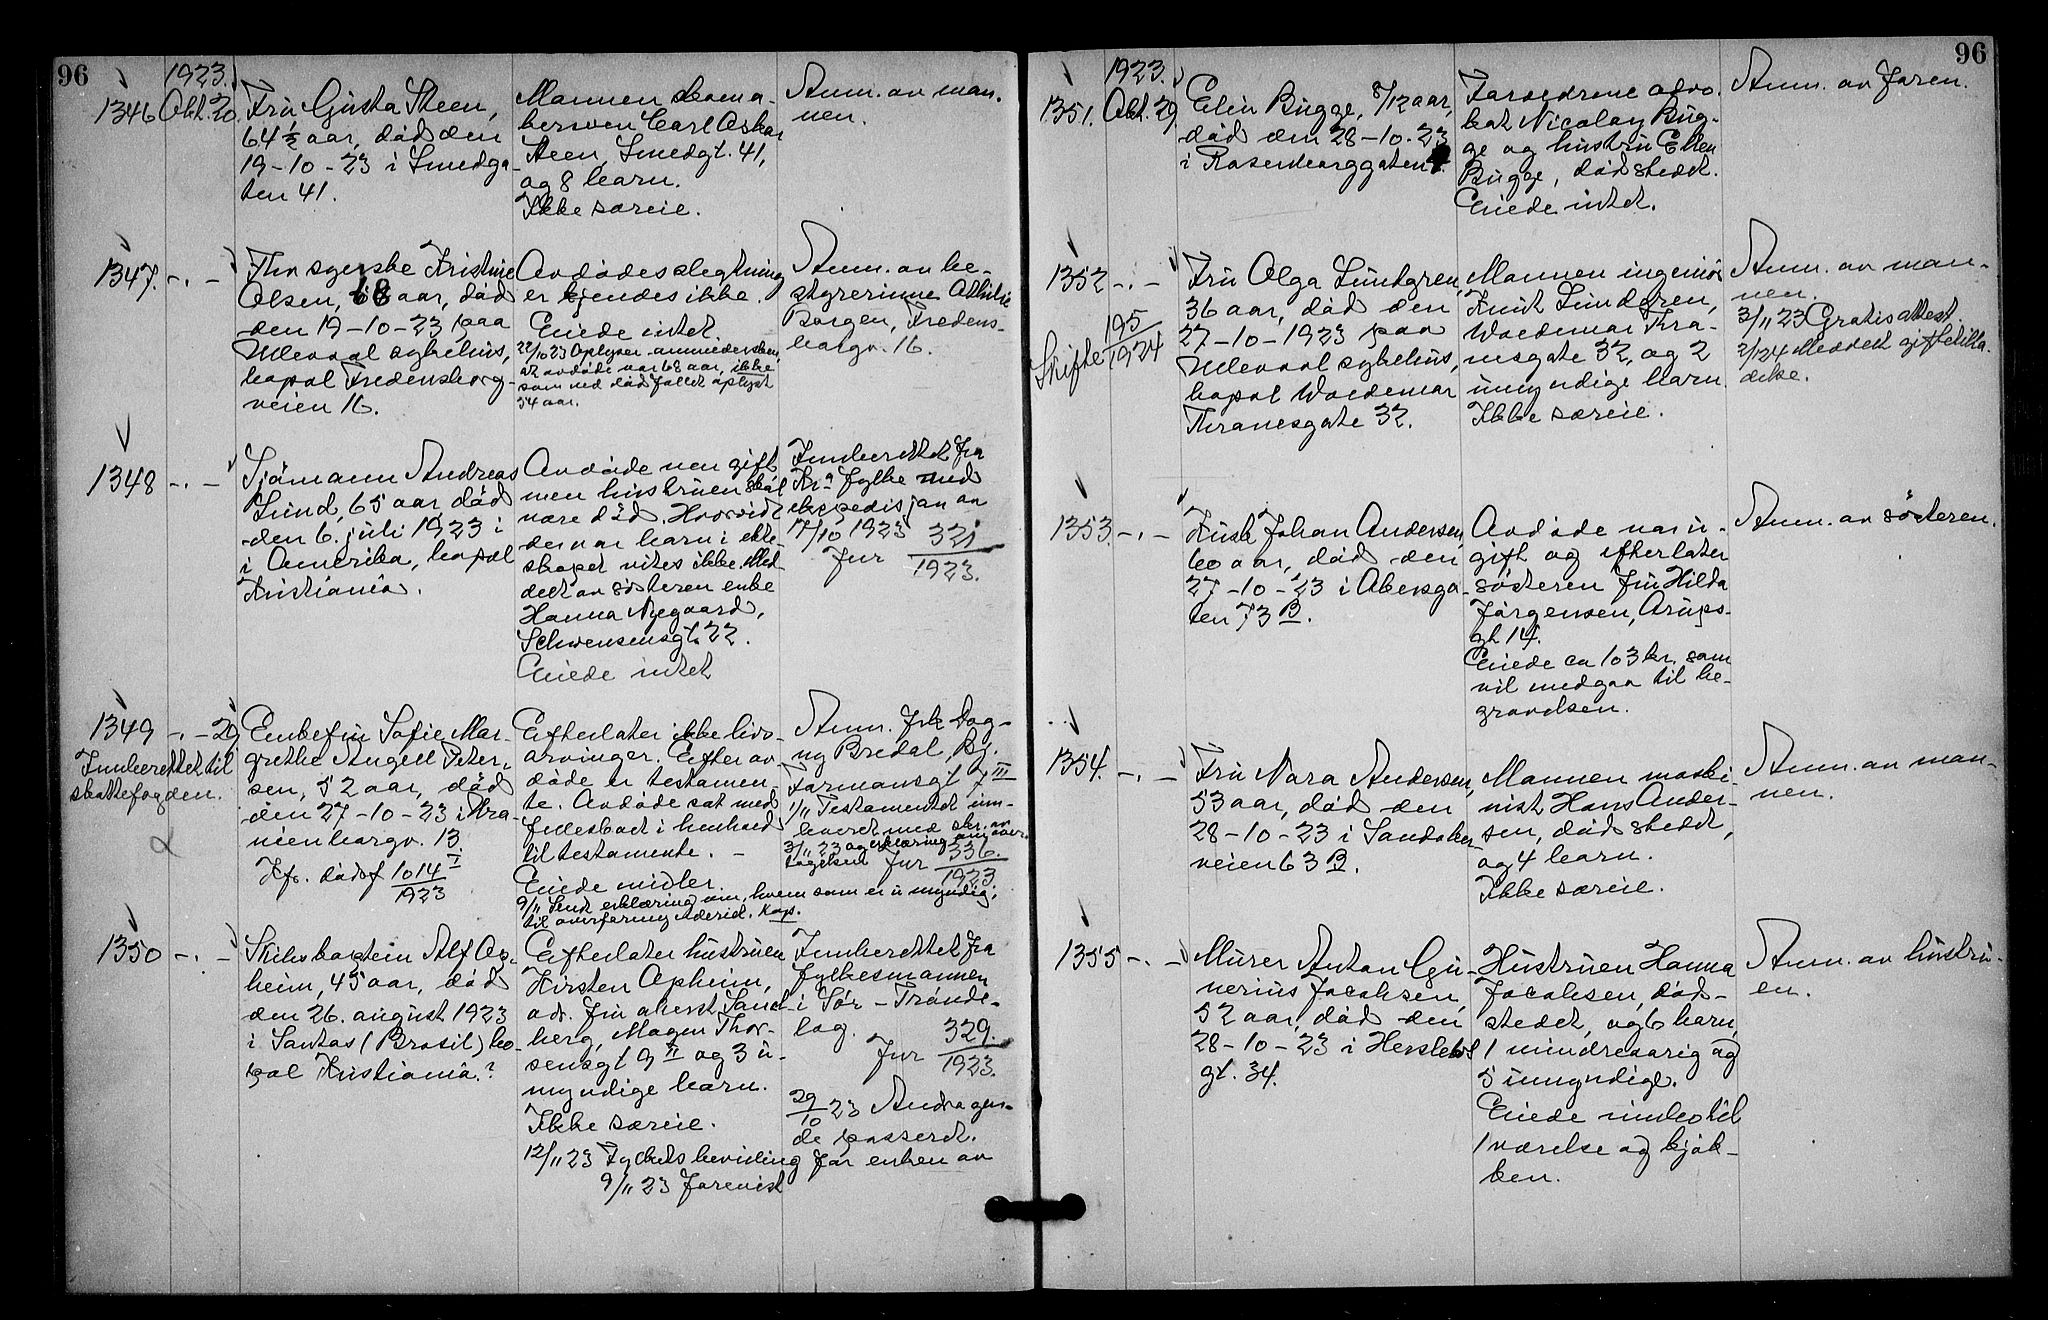 96
1923.
1346 Okt. 20.
Fru Gusta Steen,
64 1/2 aar, död den
19-10-23 i Smedga-
ten 41.
Mannen skoma-
kersven Carl Oskar
Steen, Smedgt. 41,
og 8 barn.
Ikke særeie.
Anm. av man-
nen.
1347. -.-
Fhv syerske Kristine
Olsen, 68 aar, död
den 19-10-23 paa
Ullevaal sykehus,
bopæl Fredensborg-
veien 16.
Avdödes slegtning
er kjendes ikke.
Eiede intet.
22/10 23 Oplyser anmeldersken,
at avdöde var 68 aar, ikke
som ved dödsfallet oplyst
54 aar.
Anm. av be-
styrerinne Athilie
Borgen, Fredens-
borgv. 16.
1348 -.-
Sjömann Andreas
Lund, 65 aar, död
den 6. juli 1923 i
i Amerika, bopæl
Kristiania.
Avdöde var gift
men hustruen skal
være död. Hvorvidt
der var barn i ekte-
skapet vites ikke. Med-
delt av sösteren enke
Hanna Nygaard,
Schwensensgt. 22.
Eiede intet
Innberettet fra
Kr.a fylke med
ekspedisjon av
17/10 1923
Jnr 321/1923.
1349 -.- 29
Innberettet til
skattefogden.
Enkefru Sofie Mar-
grethe Angell Peter-
sen, 52 aar, död
den 27-10-23 i Kra-
neienborgv. 13.
Jfr. dödsf 1014 I/1923
Efterlater ikke livs-
arvinger. Efter av-
döde er testamen-
te. Avdöde sat med
fellesbo i henhold
til testamente. -
Eiede midler.
9/11 Sendt erklæring om, hvem som er umyndig,
til overförmynderiet. Kop.
Anm. frk Dag-
ny Bredal, Bj.
Farmansgt 7 III
1/11 Testamentet inn-
levert med skr. av
3/11 23 og erklæring om over-
tagelsen Jnr 336./1923.
1350 -.-
Skibskaptein Alf Op-
heim, 45 aar, död
den 26. august 1923
i Santos (Brasil) bo-
pæl Kristiania.?
Efterlater hustruen
Kirsten Opheim,
adr. fru oberst Sand-
berg, Magnu Thor-
sensgt 9 II og 3 u-
myndige barn.
Ikke særeie.
12/11 23 Fylkets bevilling for enken av
9/11 23 forevist
Innberettet fra
fylkesmannen
i Sör-Trönde-
lag.
Jnr 329./1923.
29/10 23 Andragen-
de passeret.
96
1923.
1351. Okt. 29
Elin Bugge, 8/12 aar,
död den 28-10-23
i Rosenborggaten
Forældrene advo-
kat Nicolay Bug-
ge og hustru Ellen
Bugge, dödsstedet.
Eiede intet.
Anm. av faren.
1352 -.-
Skifte 195/1924
Fru Olga Lundgren,
36 aar, död den
27-10-1923 paa
Ullevaal sykehus,
bopæl Woldemar
Thranesgate 32.
Mannen ingeniör
Knut Lundgren,
Woldemar Thra-
nesgate 32, og 2
umyndige barn.
Ikke særeie.
Anm. av man-
nen.
3/11 23 Gratis attest.
2/1 24 Meddelt giftetilla-
delse.
1353. -.-
Kusk Johan Andersen,
60 aar, död den
27-10-23 i Akersga-
ten 73 B.
Avdöde var u-
gift og efterlater
sösteren fru Hilda
Jörgensen, Arups-
gt 14.
Eiede ca 103 kr. som
vil medgaa til be-
gravelsen.
Anm. av sösteren.
1354. -.-
Fru Nora Andersen,
53 aar, död den
28-10-23 i Sandaker-
veien 63 B.
Mannen maski-
nist Hans Ander-
sen, dödsstedet,
og 4 barn.
Ikke særeie.
Anm. av man-
nen.
1355 -.-
Murer Anton Gu-
nerius Jacobsen,
52 aar, död den
28-10-23 i Herslebs
gt. 34.
Hustruen Hanna
Jacobsen, död-
stedet, og 6 barn,
1 mindreaarig og
5 umyndige.
Eiede innbo til
1 værelse og kjök-
ken.
Anm. av hustru-
en.